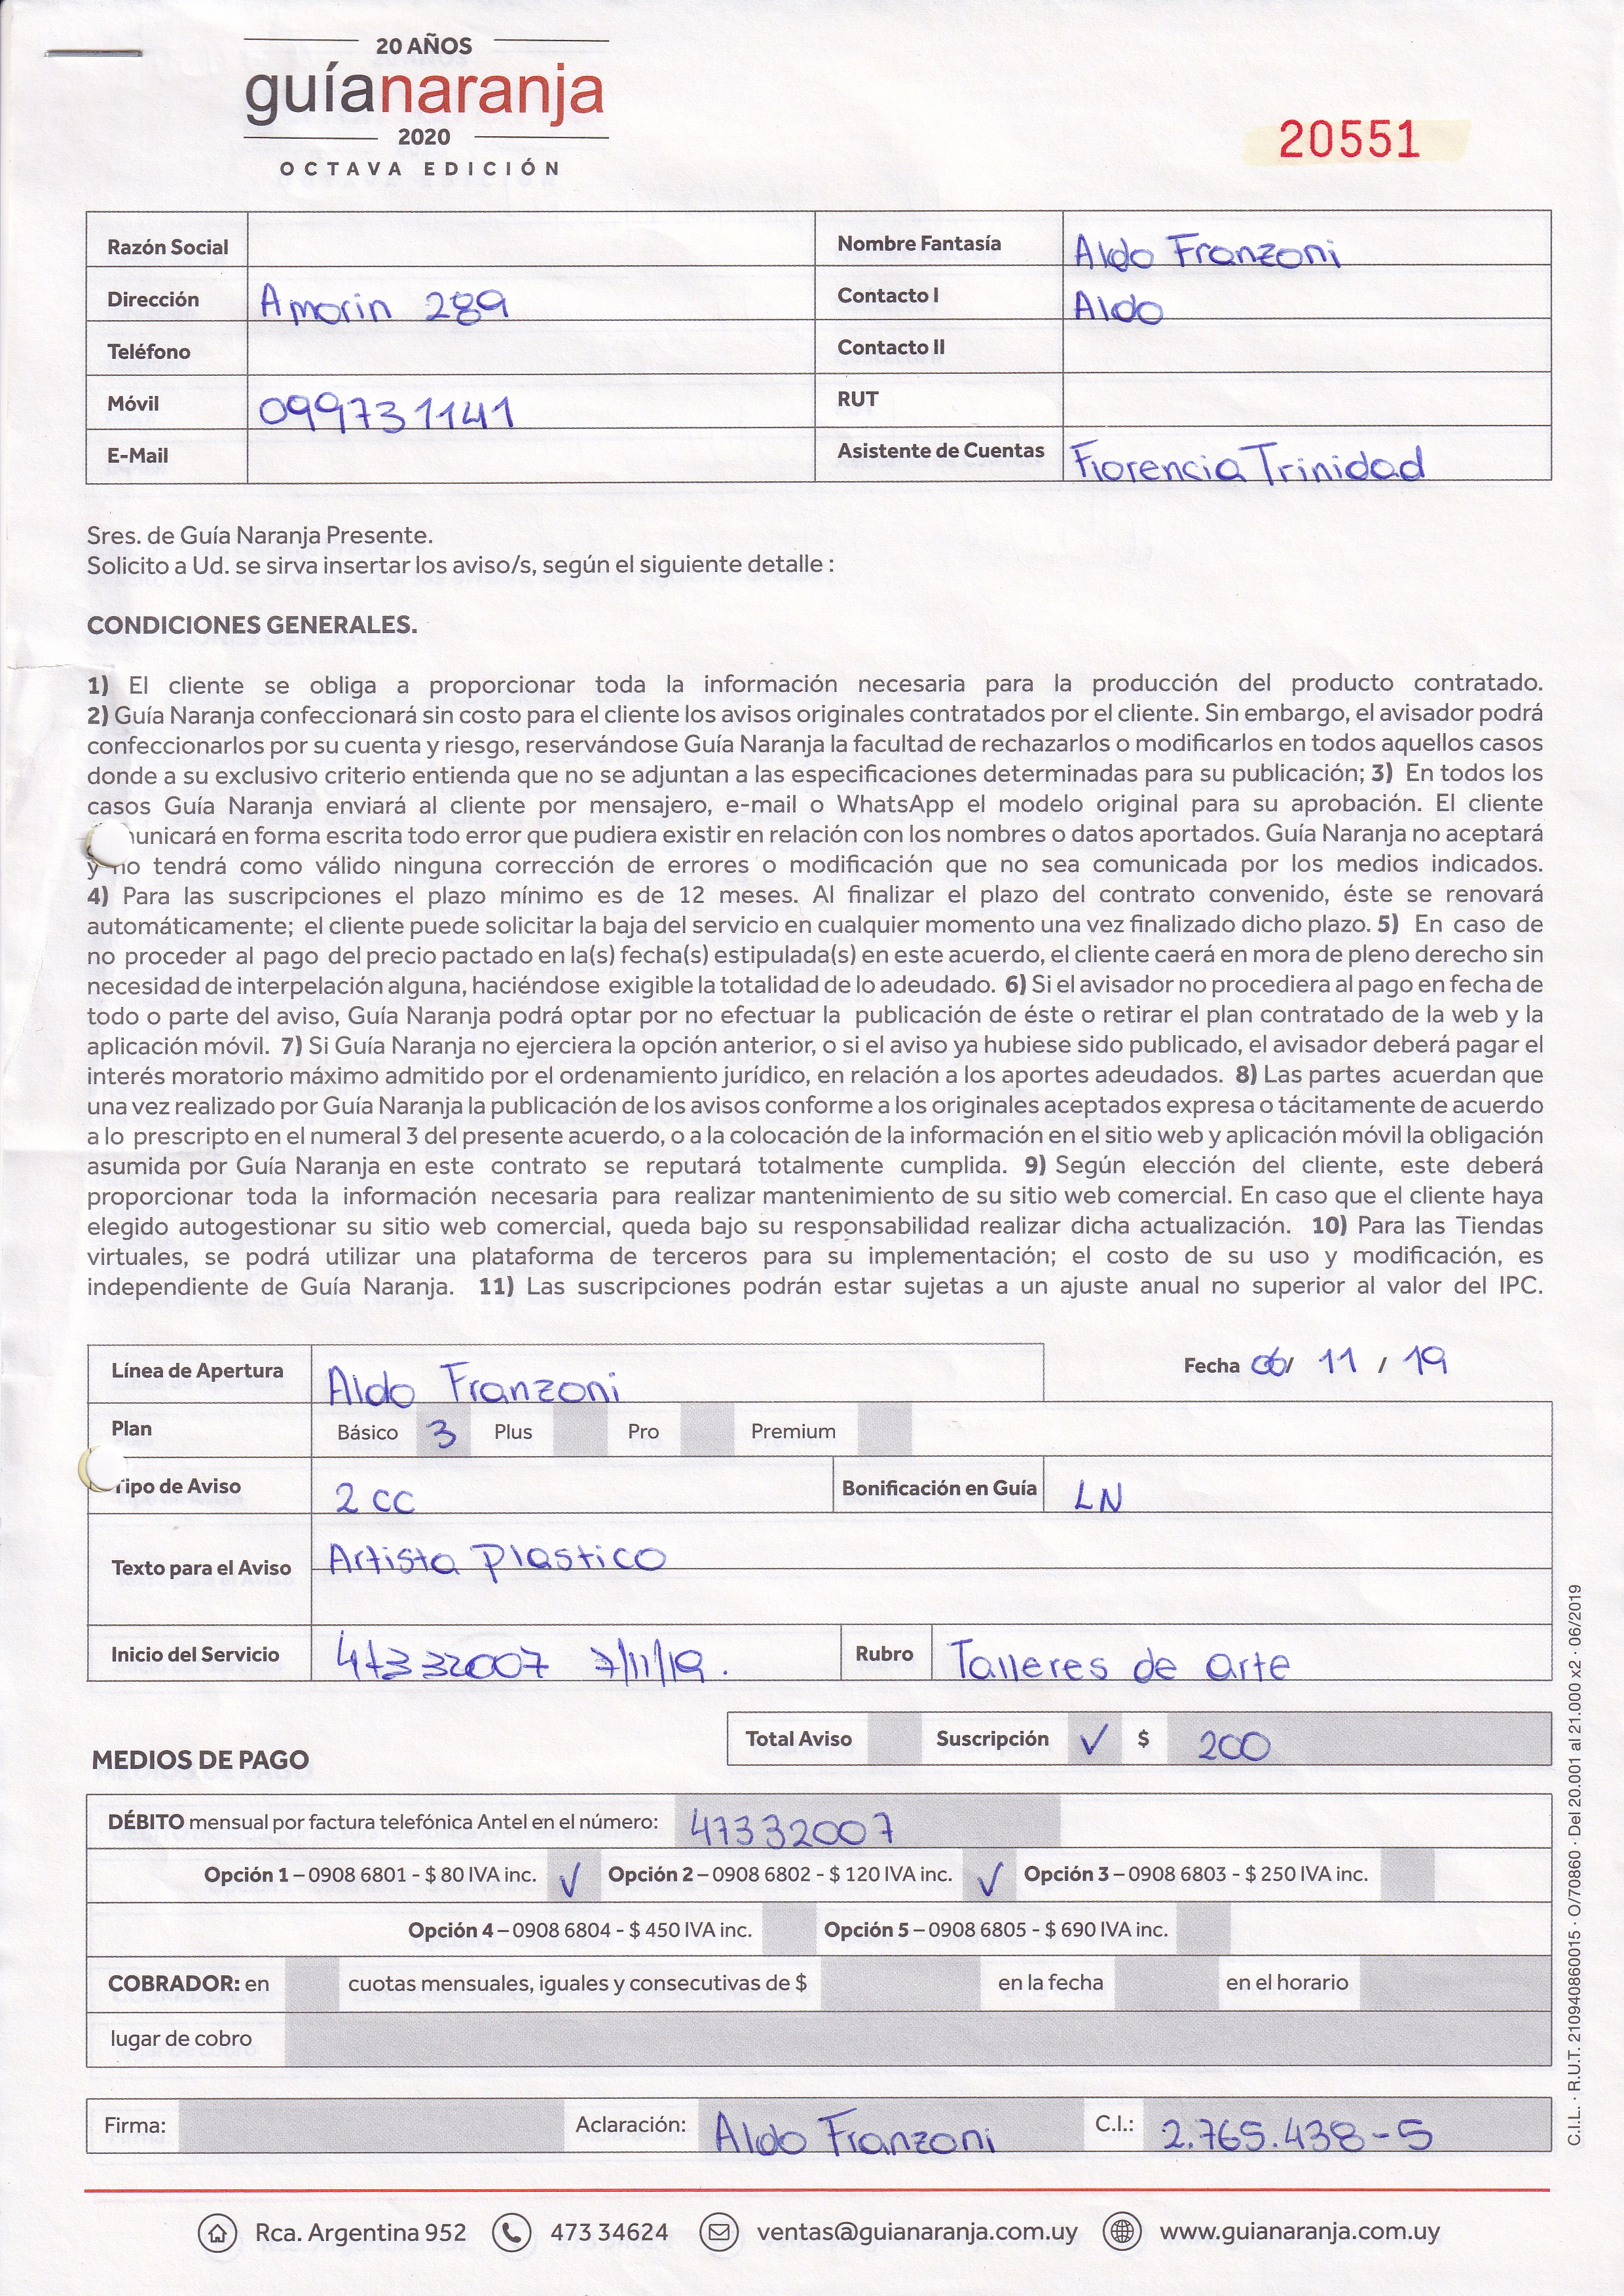 20 AÑOS
guíanaranja
2020
OCTAVA EDICIÓN
20551
Razón Social
Nombre Fantasía Aldo Franzoni
Dirección Amorin 289
Contacto I Aldo
Teléfono
Contacto II
Móvil 099731141
RUT
E-Mail
Asistente de Cuentas Florencia Trinidad
Sres. de Guía Naranja Presente.
Solicito a Ud. se sirva insertar los aviso/s, según el siguiente detalle :
CONDICIONES GENERALES.
1) El cliente se obliga a proporcionar toda la información necesaria para la producción del producto contratado.
2) Guía Naranja confeccionará sin costo para el cliente los avisos originales contratados por el cliente. Sin embargo, el avisador podrá
confeccionarlos por su cuenta y riesgo, reservándose Guía Naranja la facultad de rechazarlos o modificarlos en todos aquellos casos
donde a su exclusivo criterio entienda que no se adjuntan a las especificaciones determinadas para su publicación; 3) En todos los
casos Guía Naranja enviará al cliente por mensajero, e-mail o WhatsApp el modelo original para su aprobación. El cliente
unicará en forma escrita todo error que pudiera existir en relación con los nombres o datos aportados. Guía Naranja no aceptará
y no tendrá como válido ninguna corrección de errores o modificación que no sea comunicada por los medios indicados.
4) Para las suscripciones el plazo mínimo es de 12 meses. Al finalizar el plazo del contrato convenido, éste se renovará
automáticamente; el cliente puede solicitar la baja del servicio en cualquier momento una vez finalizado dicho plazo. 5) En caso de
no proceder al pago del precio pactado en la(s) fecha(s) estipulada(s) en este acuerdo, el cliente caerá en mora de pleno derecho sin
necesidad de interpelación alguna, haciéndose exigible la totalidad de lo adeudado. 6) Si el avisador no procediera al pago en fecha de
todo o parte del aviso, Guía Naranja podrá optar por no efectuar la publicación de éste o retirar el plan contratado de la web y la
aplicación móvil. 7) Si Guía Naranja no ejerciera la opción anterior, o si el aviso ya hubiese sido publicado, el avisador deberá pagar el
interés moratorio máximo admitido por el ordenamiento jurídico, en relación a los aportes adeudados. 8) Las partes acuerdan que
una vez realizado por Guía Naranja la publicación de los avisos conforme a los originales aceptados expresa o tácitamente de acuerdo
a lo prescripto en el numeral 3 del presente acuerdo, o a la colocación de la información en el sitio web y aplicación móvil la obligación
asumida por Guía Naranja en este contrato se reputará totalmente cumplida. 9) Según elección del cliente, este deberá
proporcionar toda la información necesaria para realizar mantenimiento de su sitio web comercial. En caso que el cliente haya
elegido autogestionar su sitio web comercial, queda bajo su responsabilidad realizar dicha actualización. 10) Para las Tiendas
virtuales, se podrá utilizar una plataforma de terceros para su implementación; el costo de su uso y modificación, es
independiente de Guía Naranja. 11) Las suscripciones podrán estar sujetas a un ajuste anual no superior al valor del IPC.
Línea de Apertura Aldo Franzoni
Fecha 06/ 11 / 19
Plan Básico 3 Plus Pro Premium
Tipo de Aviso 2 CC Bonificación en Guía LN
Texto para el Aviso Artista Plastico
Inicio del Servicio 47332007 7/11/19. Rubro Talleres de arte
Total Aviso Suscripción ✓ $ 200
MEDIOS DE PAGO
DÉBITO mensual por factura telefónica Antel en el número: 47332007
Opción 1 – 0908 6801 - $ 80 IVA inc. ✓ Opción 2 – 0908 6802 - $ 120 IVA inc. ✓ Opción 3 – 0908 6803 - $ 250 IVA inc.
Opción 4 – 0908 6804 - $ 450 IVA inc. Opción 5 – 0908 6805 - $ 690 IVA inc.
COBRADOR: en cuotas mensuales, iguales y consecutivas de $ en la fecha en el horario
lugar de cobro
Firma: Aclaración: Aldo Franzoni C.I.: 2.765.438-5
Rca. Argentina 952 473 34624 ventas@guianaranja.com.uy www.guianaranja.com.uy
C.I.L. · R.U.T. 210940860015 · O/70860 · Del 20.001 al 21.000 x2 · 06/2019